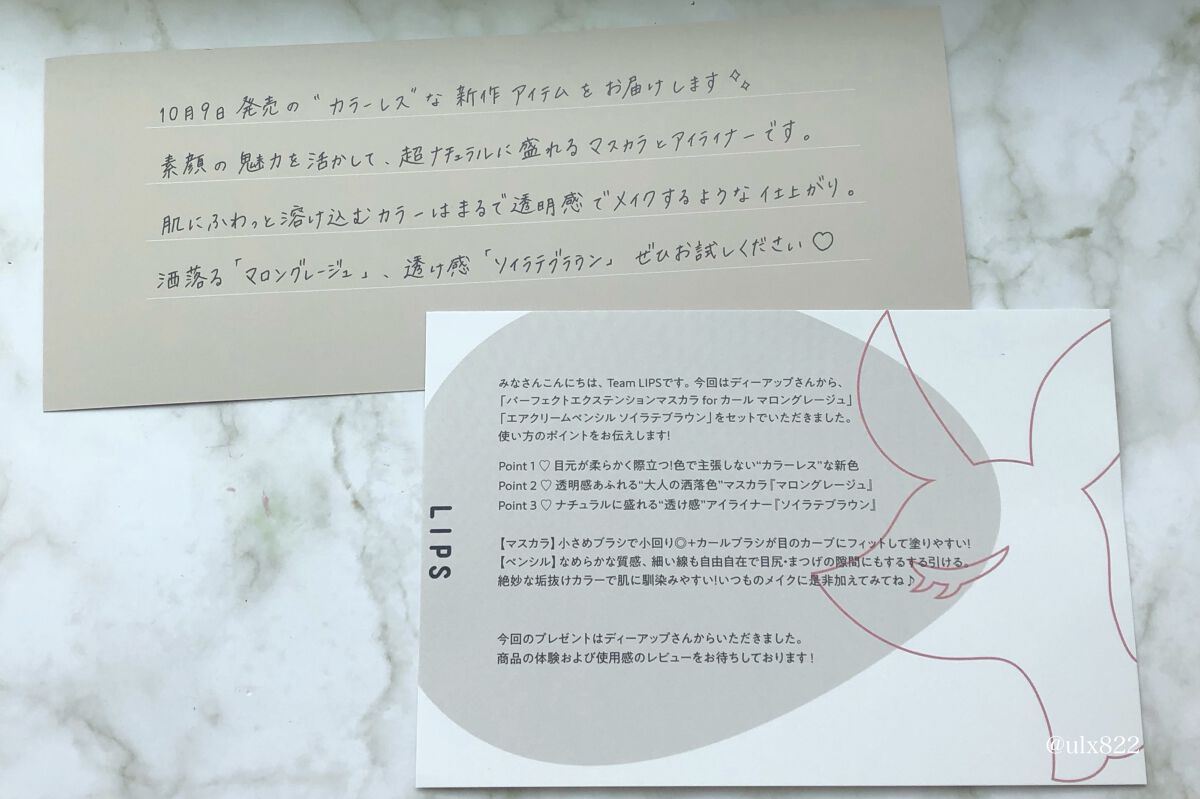 10月9日 発売の"カラーレス"な 新作 アイテムを お届けします
素顔の魅力を活かして、超ナチュラルに盛れるマスカラとアイライナーです。
肌にふわっと溶け込むカラーはまるで透明感でメイクするような仕上がり。
洒落る「マロングレージュ」、透け感「ソイラテブラウン」 ぜひお試しください♡
みなさんこんにちは、Team LIPSです。今回はディーアップさんから、
「パーフェクトエクステンションマスカラ for カール マロングレージュ」
「エアクリームペンシル ソイラテブラウン」をセットでいただきました。
使い方のポイントをお伝えします!
Point 1 ♡ 目元が柔らかく際立つ!色で主張しない"カラーレス"な新色
Point 2 ♡ 透明感あふれる"大人の洒落色"マスカラ『マロングレージュ』
Point 3 ♡ ナチュラルに盛れる"透け感"アイライナー『ソイラテブラウン』
【マスカラ】小さめブラシで小回り◎+カールブラシが目のカーブにフィットして塗りやすい!
【ペンシル】なめらかな質感、細い線も自由自在で目尻・まつげの隙間にもするする引ける。
絶妙な垢抜けカラーで肌に馴染みやすい!いつものメイクに是非加えてみてね♪
今回のプレゼントはディーアップさんからいただきました。
商品の体験および使用感のレビューをお待ちしております!
LIPS
@ulx822